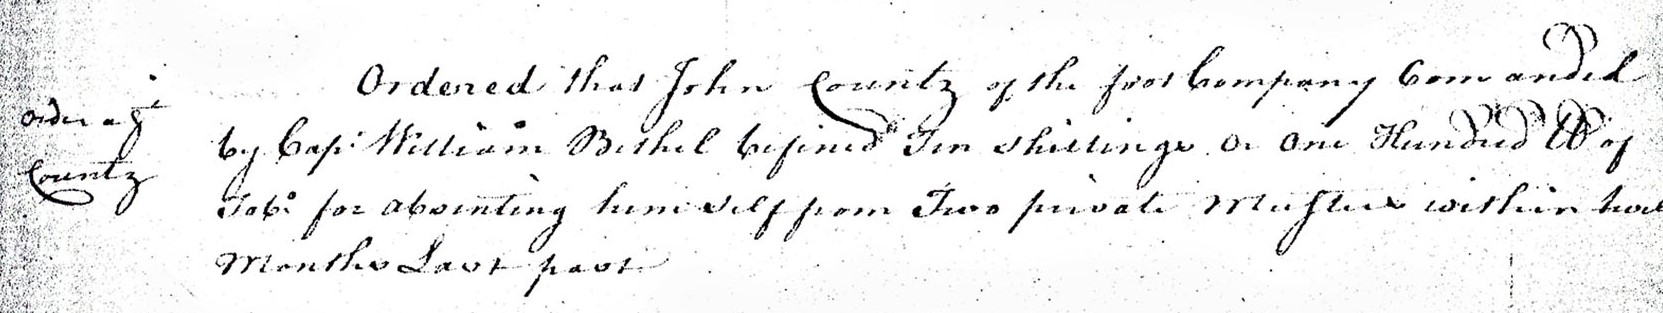 Ordered that John Countz of the foot Company Comanded
Order agt
by Capt. William Bethel befined Ten shillings or one Hundred lb of
Countz
Tabo. for absenting him self from Two private Musters within twel
Months Last past